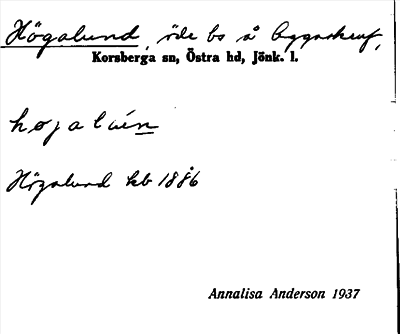 Högalund, öde bs å Byggarkeuf,
Korsberga sn, Östra hd, Jönk. l.
høgalúen
Högalund kb 1886
Annalisa Anderson 1937